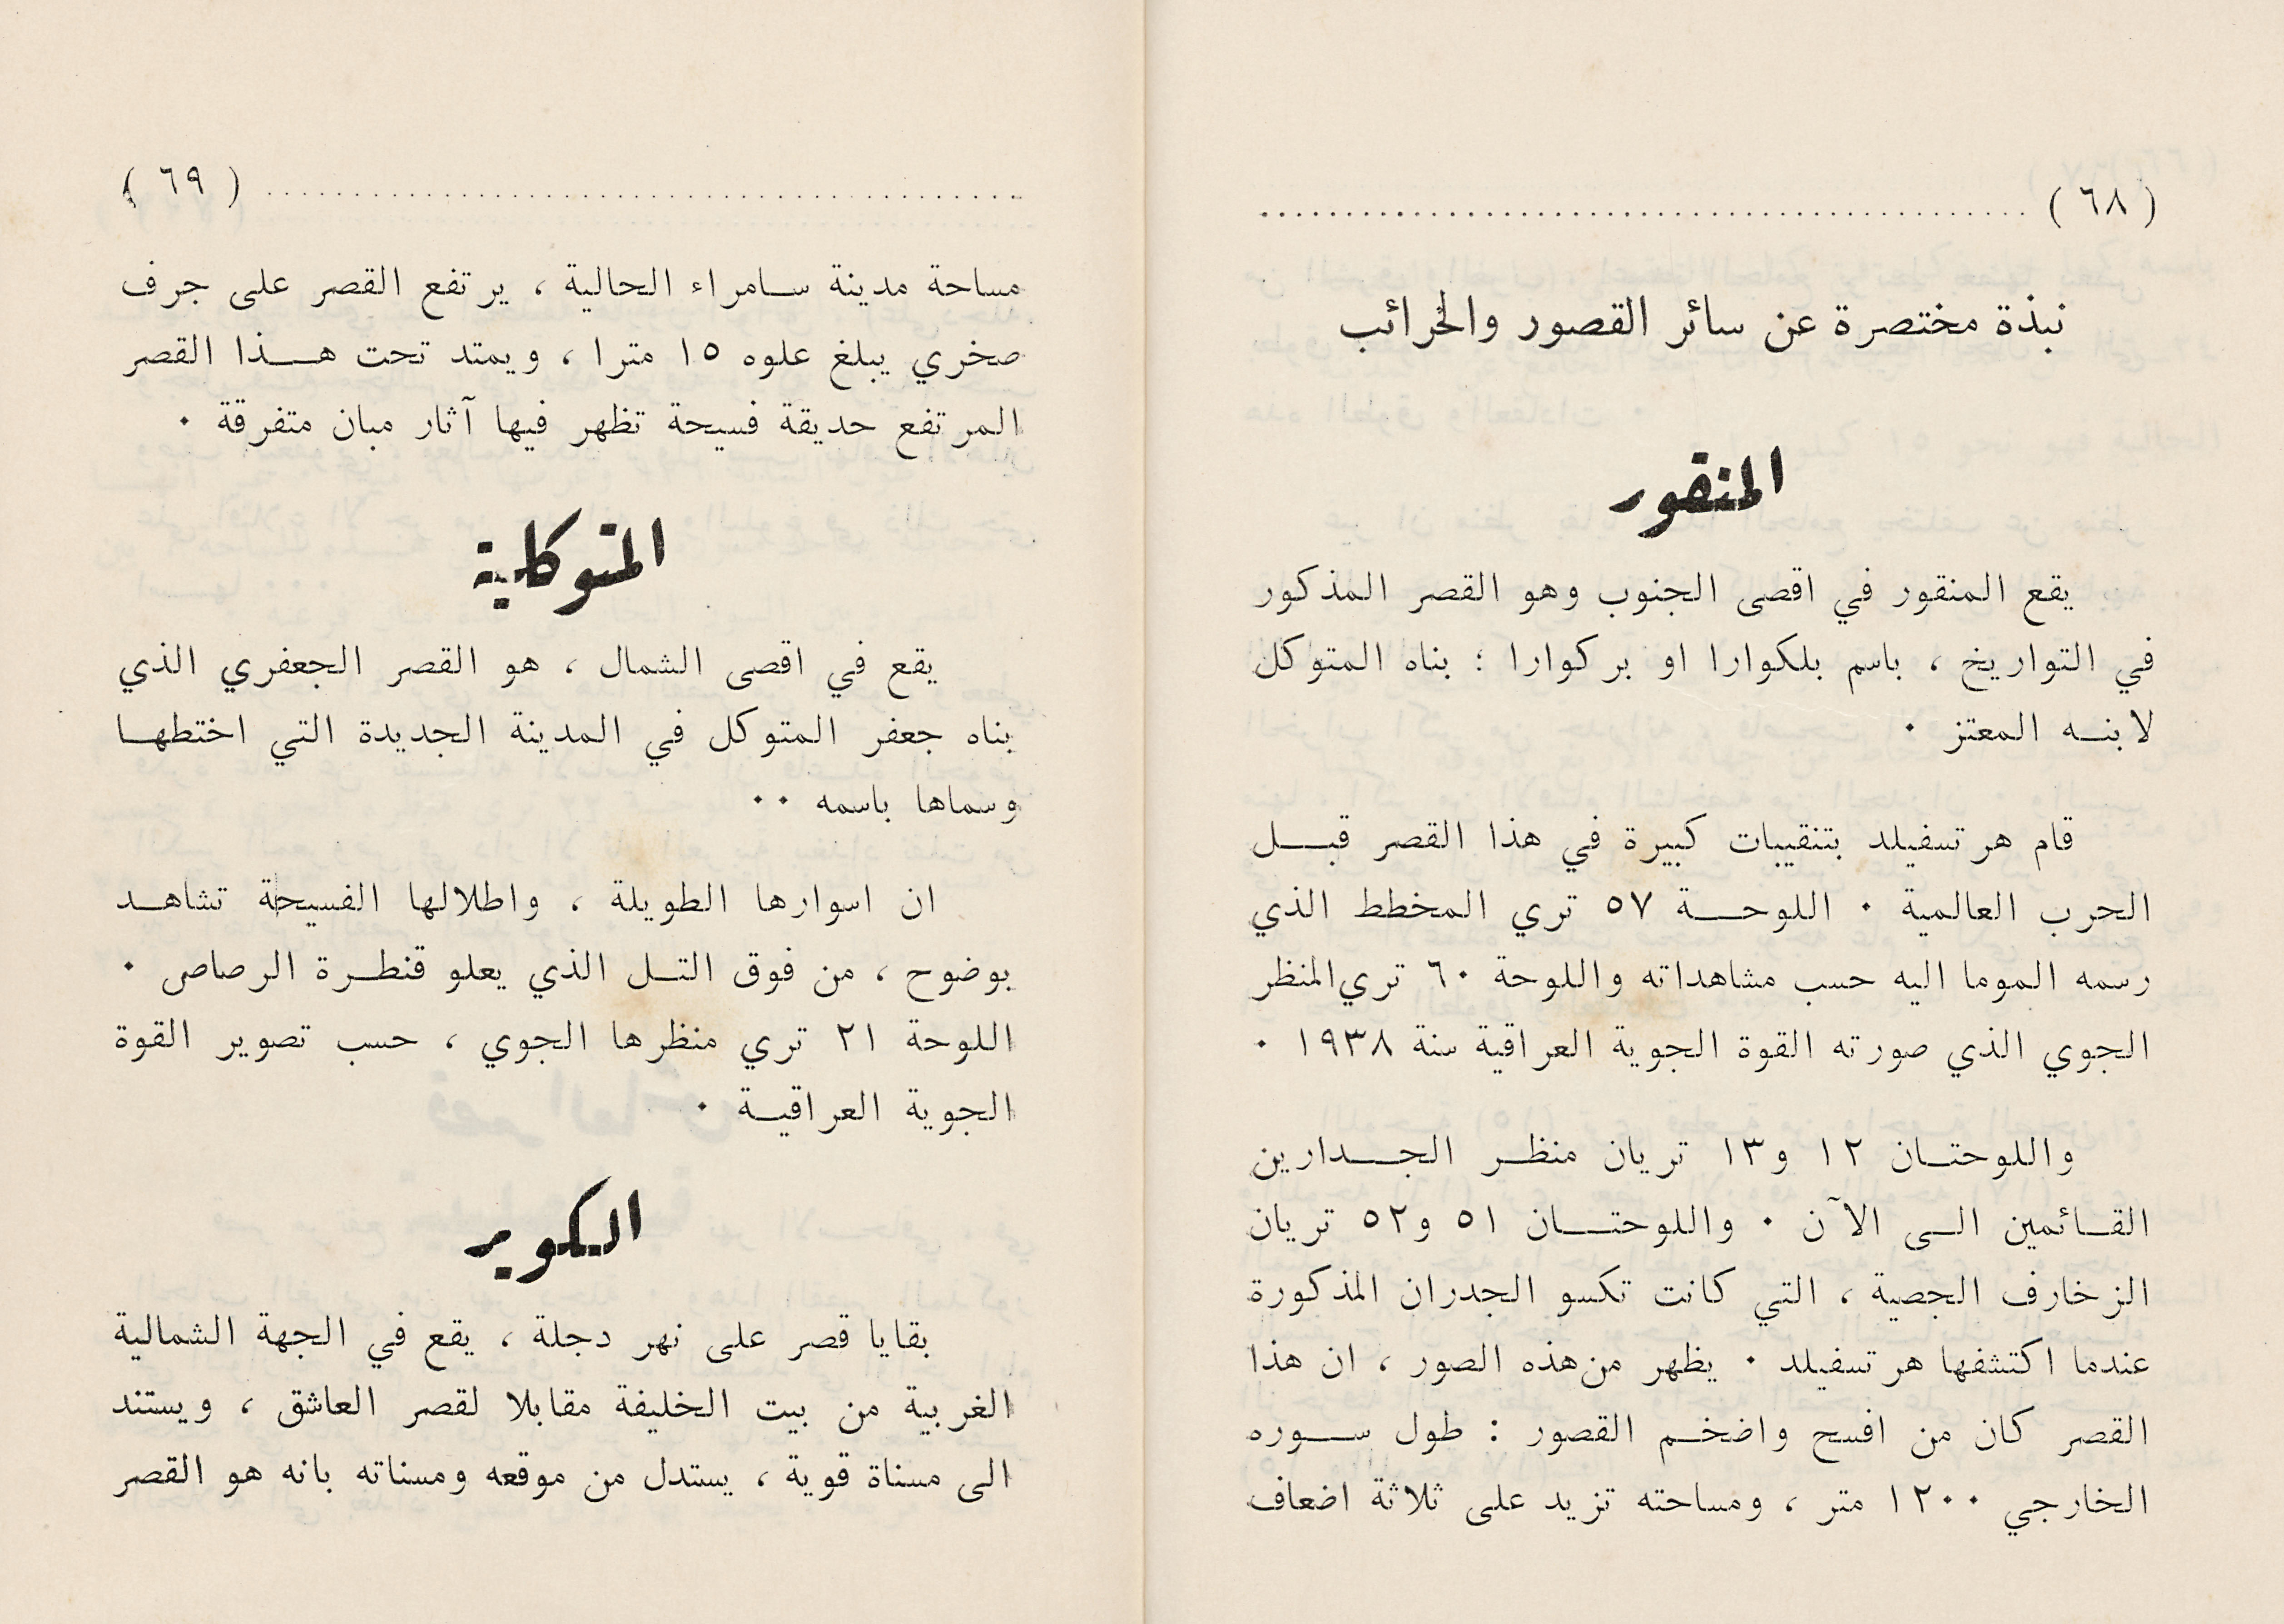 ( ٦٨ ) ..............................................
نبذة مختصرة عن سائر القصور والخرائب
المنقور
يقع المنقور في اقصى الجنوب وهو القصر المذكور
في التواريخ ، باسم بلكوارا او بركوارا ؛ بناه المتوكل
لابنـه المعتز ٠
قام هرتسفيلد بتنقيبات كبيرة في هذا القصر قبـل
الحرب العالمية ٠ اللوحـة ٥٧ تري المخطط الذي
رسمه الموما اليه حسب مشاهداته واللوحة ٦٠ تري المنظر
الجوي الذي صورته القوة الجوية العراقية سنة ١٩٣٨ ٠
واللوحتـان ١٢ و١٣ تريان منظـر الجـدارين
القـائمين الـى الآن ٠ واللوحتـان ٥١ و٥٢ تريان
الزخارف الجصية ، التي كانت تكسو الجدران المذكورة
عندما اكتشفها هرتسفيلد ٠ يظهر من هذه الصور ، ان هذا
القصر كان من افسح واضخـم القصور : طول سـوره
الخارجي ١٢٠٠ متر ، ومساحته تزيد على ثلاثة اضعاف
.............................................. ( ٦٩ )
مساحة مدينة سـامراء الحالية ، يرتفع القصر على جرف
صخري يبلغ علوه ١٥ مترا ، ويمتد تحت هـذا القصر
المرتفع حديقة فسيحة تظهر فيها آثار مبان متفرقة ٠
المتوكلية
يقع في اقصى الشمال ، هو القصر الجعفري الذي
بناه جعفر المتوكل في المدينة الجديدة التي اختطهـا
وسماها باسمه ٠٠
ان اسوارها الطويلة ، واطلالها الفسيحة تشاهـد
بوضوح ، من فوق التـل الذي يعلو قنطـرة الرصاص ٠
اللوحة ٢١ تري منظرها الجوي ، حسب تصوير القوة
الجوية العراقيـة ٠
الكوير
بقايا قصر على نهر دجلة ، يقع في الجهة الشمالية
الغربية من بيت الخليفة مقابلا لقصر العاشق ، ويستند
الى مسناة قوية ، يستدل من موقعه ومسناته بانه هو القصر